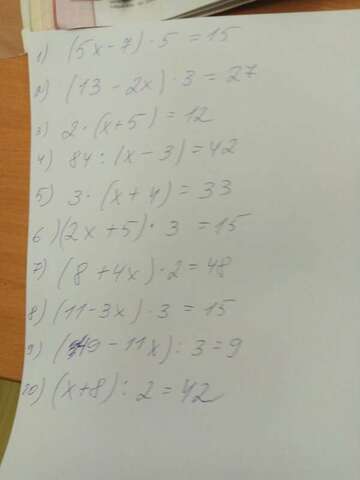 1) (5x-7)·5=15
2) (13-2x)·3=27
3) 2·(x+5)=12
4) 84:(x-3)=42
5) 3·(x+4)=33
6) (2x+5)·3=15
7) (8+4x)·2=48
8) (11-3x)·3=15
9) (49-11x):3=9
10) (x+8):2=42